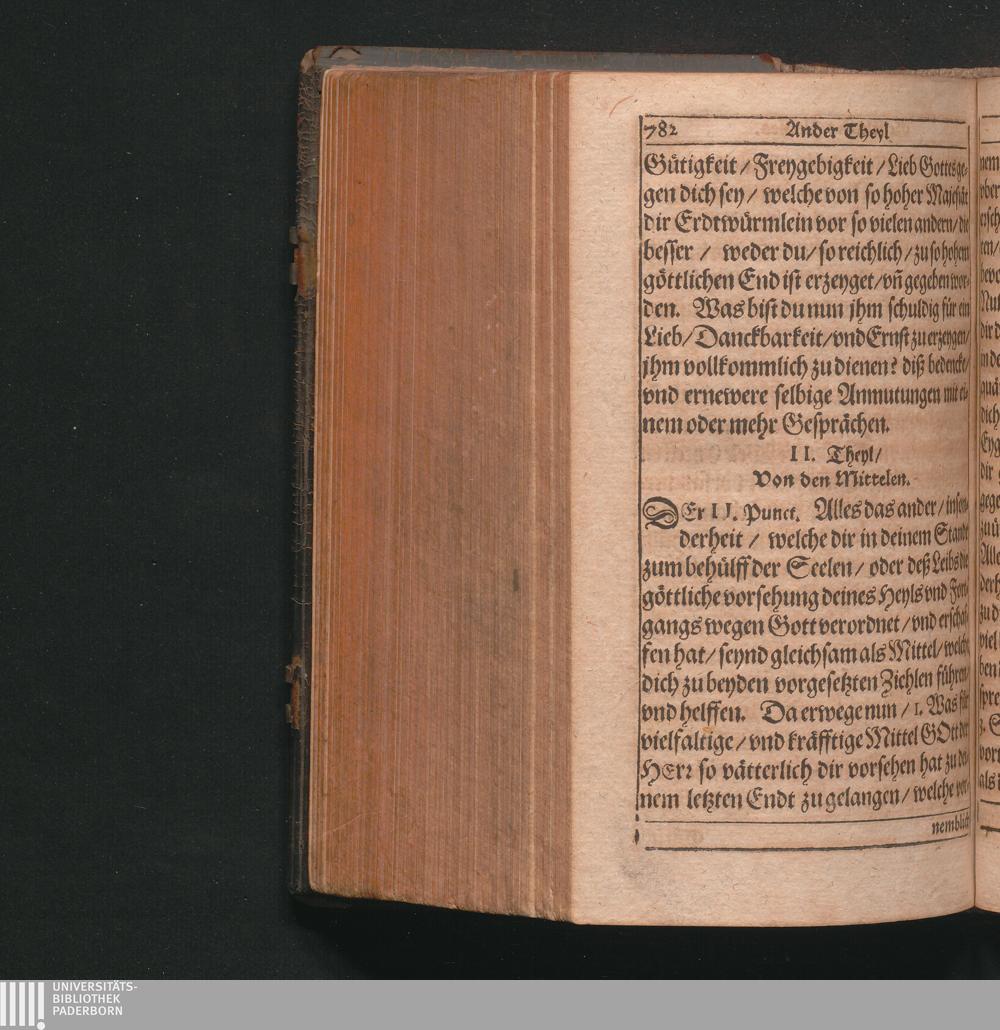 782 Ander Theyl
Gütigkeit / Freygebigkeit / Lieb Gottes ge-
gen dich sey / welche von so hoher Majestät
dir Erdtwürmlein vor so vielen andern / die
besser / weder du / so reichlich / zu so hohem
göttlichen End ist erzeyget / vñ gegeben wor-
den. Was bist du nun jhm schuldig für ein
Lieb / Danckbarkeit / vnd Ernst zu erzeygen /
jhm vollkommlich zu dienen? diß bedencke /
vnd ernewere selbige Anmutungen mit ei-
nem oder mehr Gesprächen.
II. Theyl /
Von den Mittelen.
DEr II. Punct. Alles das ander / inson-
derheit / welche dir in deinem Standt
zum behülff der Seelen / oder deß Leibs die
göttliche vorsehung deines Heyls vnd Fort-
gangs wegen Gott verordnet / vnd erschaf-
fen hat / seynd gleichsam als Mittel / welche
dich zu beyden vorgesetzten Ziehlen führen /
vnd helffen. Da erwege nun / 1. Was für
vielfaltige / vnd kräfftige Mittel GOtt der
HErr so vätterlich dir vorsehen hat zu dei-
nem letzten Endt zu gelangen / welche vor-
nemblich
UNIVERSITÄTS-
BIBLIOTHEK
PADERBORN